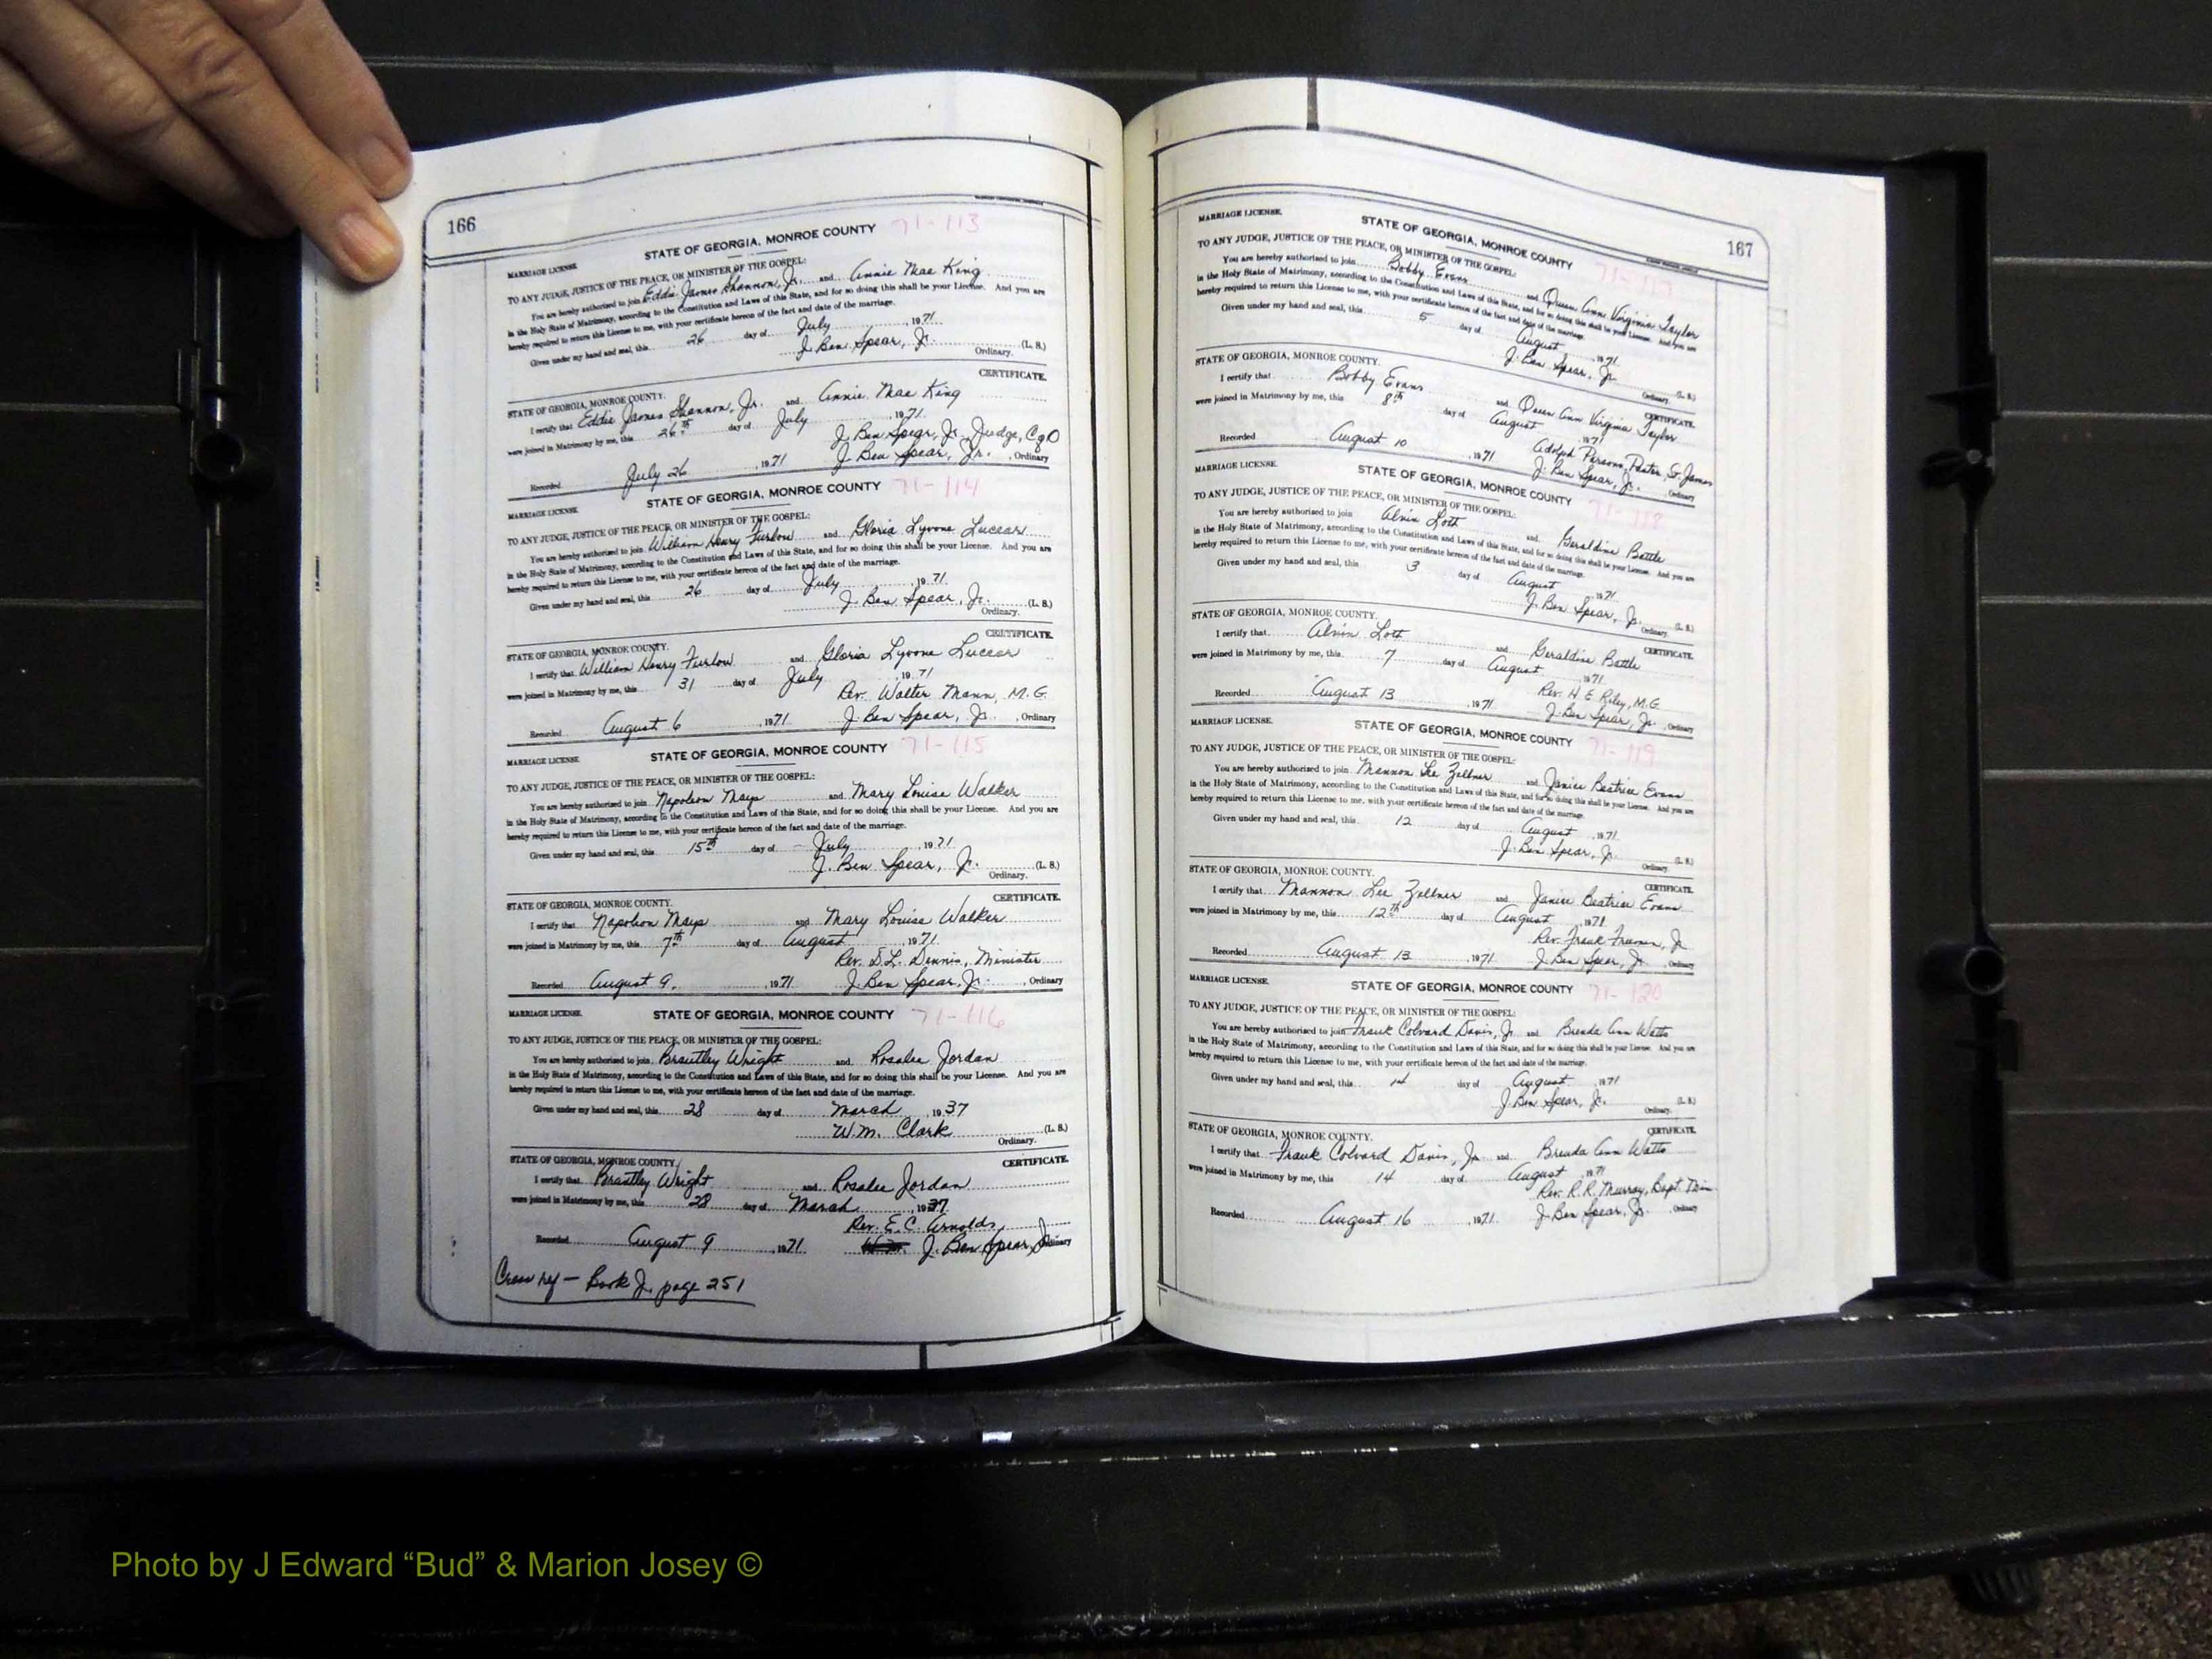 166
MARRIAGE LICENSE STATE OF GEORGIA, MONROE COUNTY 71-113
TO ANY JUDGE, JUSTICE OF THE PEACE, OR MINISTER OF THE GOSPEL:
You are hereby authorized to join Eddie James Shannon, Jr. and Annie Mae King
in the Holy State of Matrimony, according to the Constitution and Laws of this State, and for so doing this shall be your License. And you are
hereby required to return this License to me, with your certificate hereon of the fact and date of the marriage.
Given under my hand and seal, this 26 day of July, 1971.
J. Ben Spear, Jr. (L. S.)
Ordinary.
CERTIFICATE.
STATE OF GEORGIA, MONROE COUNTY.
I certify that Eddie James Shannon, Jr. and Annie Mae King
were joined in Matrimony by me, this 26th day of July, 1971.
J. Ben Spear, Jr. Judge, C of O
Recorded July 26, 1971 J. Ben Spear, Jr., Ordinary
MARRIAGE LICENSE STATE OF GEORGIA, MONROE COUNTY 71-114
TO ANY JUDGE, JUSTICE OF THE PEACE, OR MINISTER OF THE GOSPEL:
You are hereby authorized to join William Henry Furlow and Gloria Lyvone
in the Holy State of Matrimony, according to the Constitution and Laws of this State, and for so doing this shall be your License. And you are
hereby required to return this License to me, with your certificate hereon of the fact and date of the marriage.
Given under my hand and seal, this 26 day of July, 1971.
J. Ben Spear, Jr. (L. S.)
Ordinary.
CERTIFICATE.
STATE OF GEORGIA, MONROE COUNTY.
I certify that William Henry Furlow and Gloria Lyvone
were joined in Matrimony by me, this 31 day of July, 1971
Rev. Walter Mann, M.G.
Recorded August 6, 1971. J. Ben Spear, Jr., Ordinary
MARRIAGE LICENSE STATE OF GEORGIA, MONROE COUNTY 71-115
TO ANY JUDGE, JUSTICE OF THE PEACE, OR MINISTER OF THE GOSPEL:
You are hereby authorized to join Napoleon Mays and Mary Louise Walker
in the Holy State of Matrimony, according to the Constitution and Laws of this State, and for so doing this shall be your License. And you are
hereby required to return this License to me, with your certificate hereon of the fact and date of the marriage.
Given under my hand and seal, this 15th day of July, 1971.
J. Ben Spear, Jr. (L. S.)
Ordinary.
CERTIFICATE.
STATE OF GEORGIA, MONROE COUNTY.
I certify that Napoleon Mays and Mary Louise Walker
were joined in Matrimony by me, this 7th day of August, 1971.
Rev. S.L. Dennis, Minister
Recorded August 9, 1971. J. Ben Spear, Jr., Ordinary
MARRIAGE LICENSE STATE OF GEORGIA, MONROE COUNTY 71-116
TO ANY JUDGE, JUSTICE OF THE PEACE, OR MINISTER OF THE GOSPEL:
You are hereby authorized to join Brantley Wright and Rosalee Jordan
in the Holy State of Matrimony, according to the Constitution and Laws of this State, and for so doing this shall be your License. And you are
hereby required to return this License to me, with your certificate hereon of the fact and date of the marriage.
Given under my hand and seal, this 28 day of March, 1937
W.M. Clark (L. S.)
Ordinary.
STATE OF GEORGIA, MONROE COUNTY. CERTIFICATE.
I certify that Brantley Wright and Rosalee Jordan
were joined in Matrimony by me, this 28 day of March, 1937.
Rev. E. C. Arnolds
Recorded August 9, 1971. J. Ben Spear, Jr. Ordinary
Cross ref — Book J, page 251
167
MARRIAGE LICENSE. STATE OF GEORGIA, MONROE COUNTY 71-117
TO ANY JUDGE, JUSTICE OF THE PEACE, OR MINISTER OF THE GOSPEL:
You are hereby authorized to join Bobby Evans and Queen Ann Virginia Taylor
in the Holy State of Matrimony, according to the Constitution and Laws of this State, and for so doing this shall be your License. And you are
hereby required to return this License to me, with your certificate hereon of the fact and date of the marriage.
Given under my hand and seal, this 5 day of August, 1971.
J. Ben Spear, Jr. (L. S.)
Ordinary.
STATE OF GEORGIA, MONROE COUNTY. CERTIFICATE.
I certify that Bobby Evans and Queen Ann Virginia Taylor
were joined in Matrimony by me, this 8th day of August, 1971
Adolph Parsons, Pastor, St. James
Recorded August 10, 1971 J. Ben Spear, Jr. Ordinary
MARRIAGE LICENSE. STATE OF GEORGIA, MONROE COUNTY 71-118
TO ANY JUDGE, JUSTICE OF THE PEACE, OR MINISTER OF THE GOSPEL:
You are hereby authorized to join Alvin Lott and Geraldine Battle
in the Holy State of Matrimony, according to the Constitution and Laws of this State, and for so doing this shall be your License. And you are
hereby required to return this License to me, with your certificate hereon of the fact and date of the marriage.
Given under my hand and seal, this 3 day of August, 1971.
J. Ben Spear, Jr. (L. S.)
Ordinary.
STATE OF GEORGIA, MONROE COUNTY. CERTIFICATE.
I certify that Alvin Lott and Geraldine Battle
were joined in Matrimony by me, this 7 day of August, 1971.
Rev. H. E. Riley, M.G.
Recorded August 13, 1971 J. Ben Spear, Jr., Ordinary
MARRIAGE LICENSE. STATE OF GEORGIA, MONROE COUNTY 71-119
TO ANY JUDGE, JUSTICE OF THE PEACE, OR MINISTER OF THE GOSPEL:
You are hereby authorized to join Mannon Lee Zellner and Janice Beatrice Evans
in the Holy State of Matrimony, according to the Constitution and Laws of this State, and for so doing this shall be your License. And you are
hereby required to return this License to me, with your certificate hereon of the fact and date of the marriage.
Given under my hand and seal, this 12 day of August, 1971.
J. Ben Spear, Jr. (L. S.)
Ordinary.
STATE OF GEORGIA, MONROE COUNTY. CERTIFICATE.
I certify that Mannon Lee Zellner and Janice Beatrice Evans
were joined in Matrimony by me, this 12th day of August, 1971
Rev. Frank Jr
Recorded August 13, 1971 J. Ben Spear, Jr., Ordinary
MARRIAGE LICENSE. STATE OF GEORGIA, MONROE COUNTY 71-120
TO ANY JUDGE, JUSTICE OF THE PEACE, OR MINISTER OF THE GOSPEL:
You are hereby authorized to join Frank Colvard Davis, Jr. and Brenda Ann Watts
in the Holy State of Matrimony, according to the Constitution and Laws of this State, and for so doing this shall be your License. And you are
hereby required to return this License to me, with your certificate hereon of the fact and date of the marriage.
Given under my hand and seal, this 14 day of August, 1971
J. Ben Spear, Jr. (L. S.)
Ordinary.
STATE OF GEORGIA, MONROE COUNTY. CERTIFICATE.
I certify that Frank Colvard Davis, Jr. and Brenda Ann Watts
were joined in Matrimony by me, this 14 day of August, 1971
Rev. R.R. Murray, Bapt. Min
Recorded August 16, 1971. J. Ben Spear, Jr. Ordinary
Photo by J Edward “Bud” & Marion Josey ©